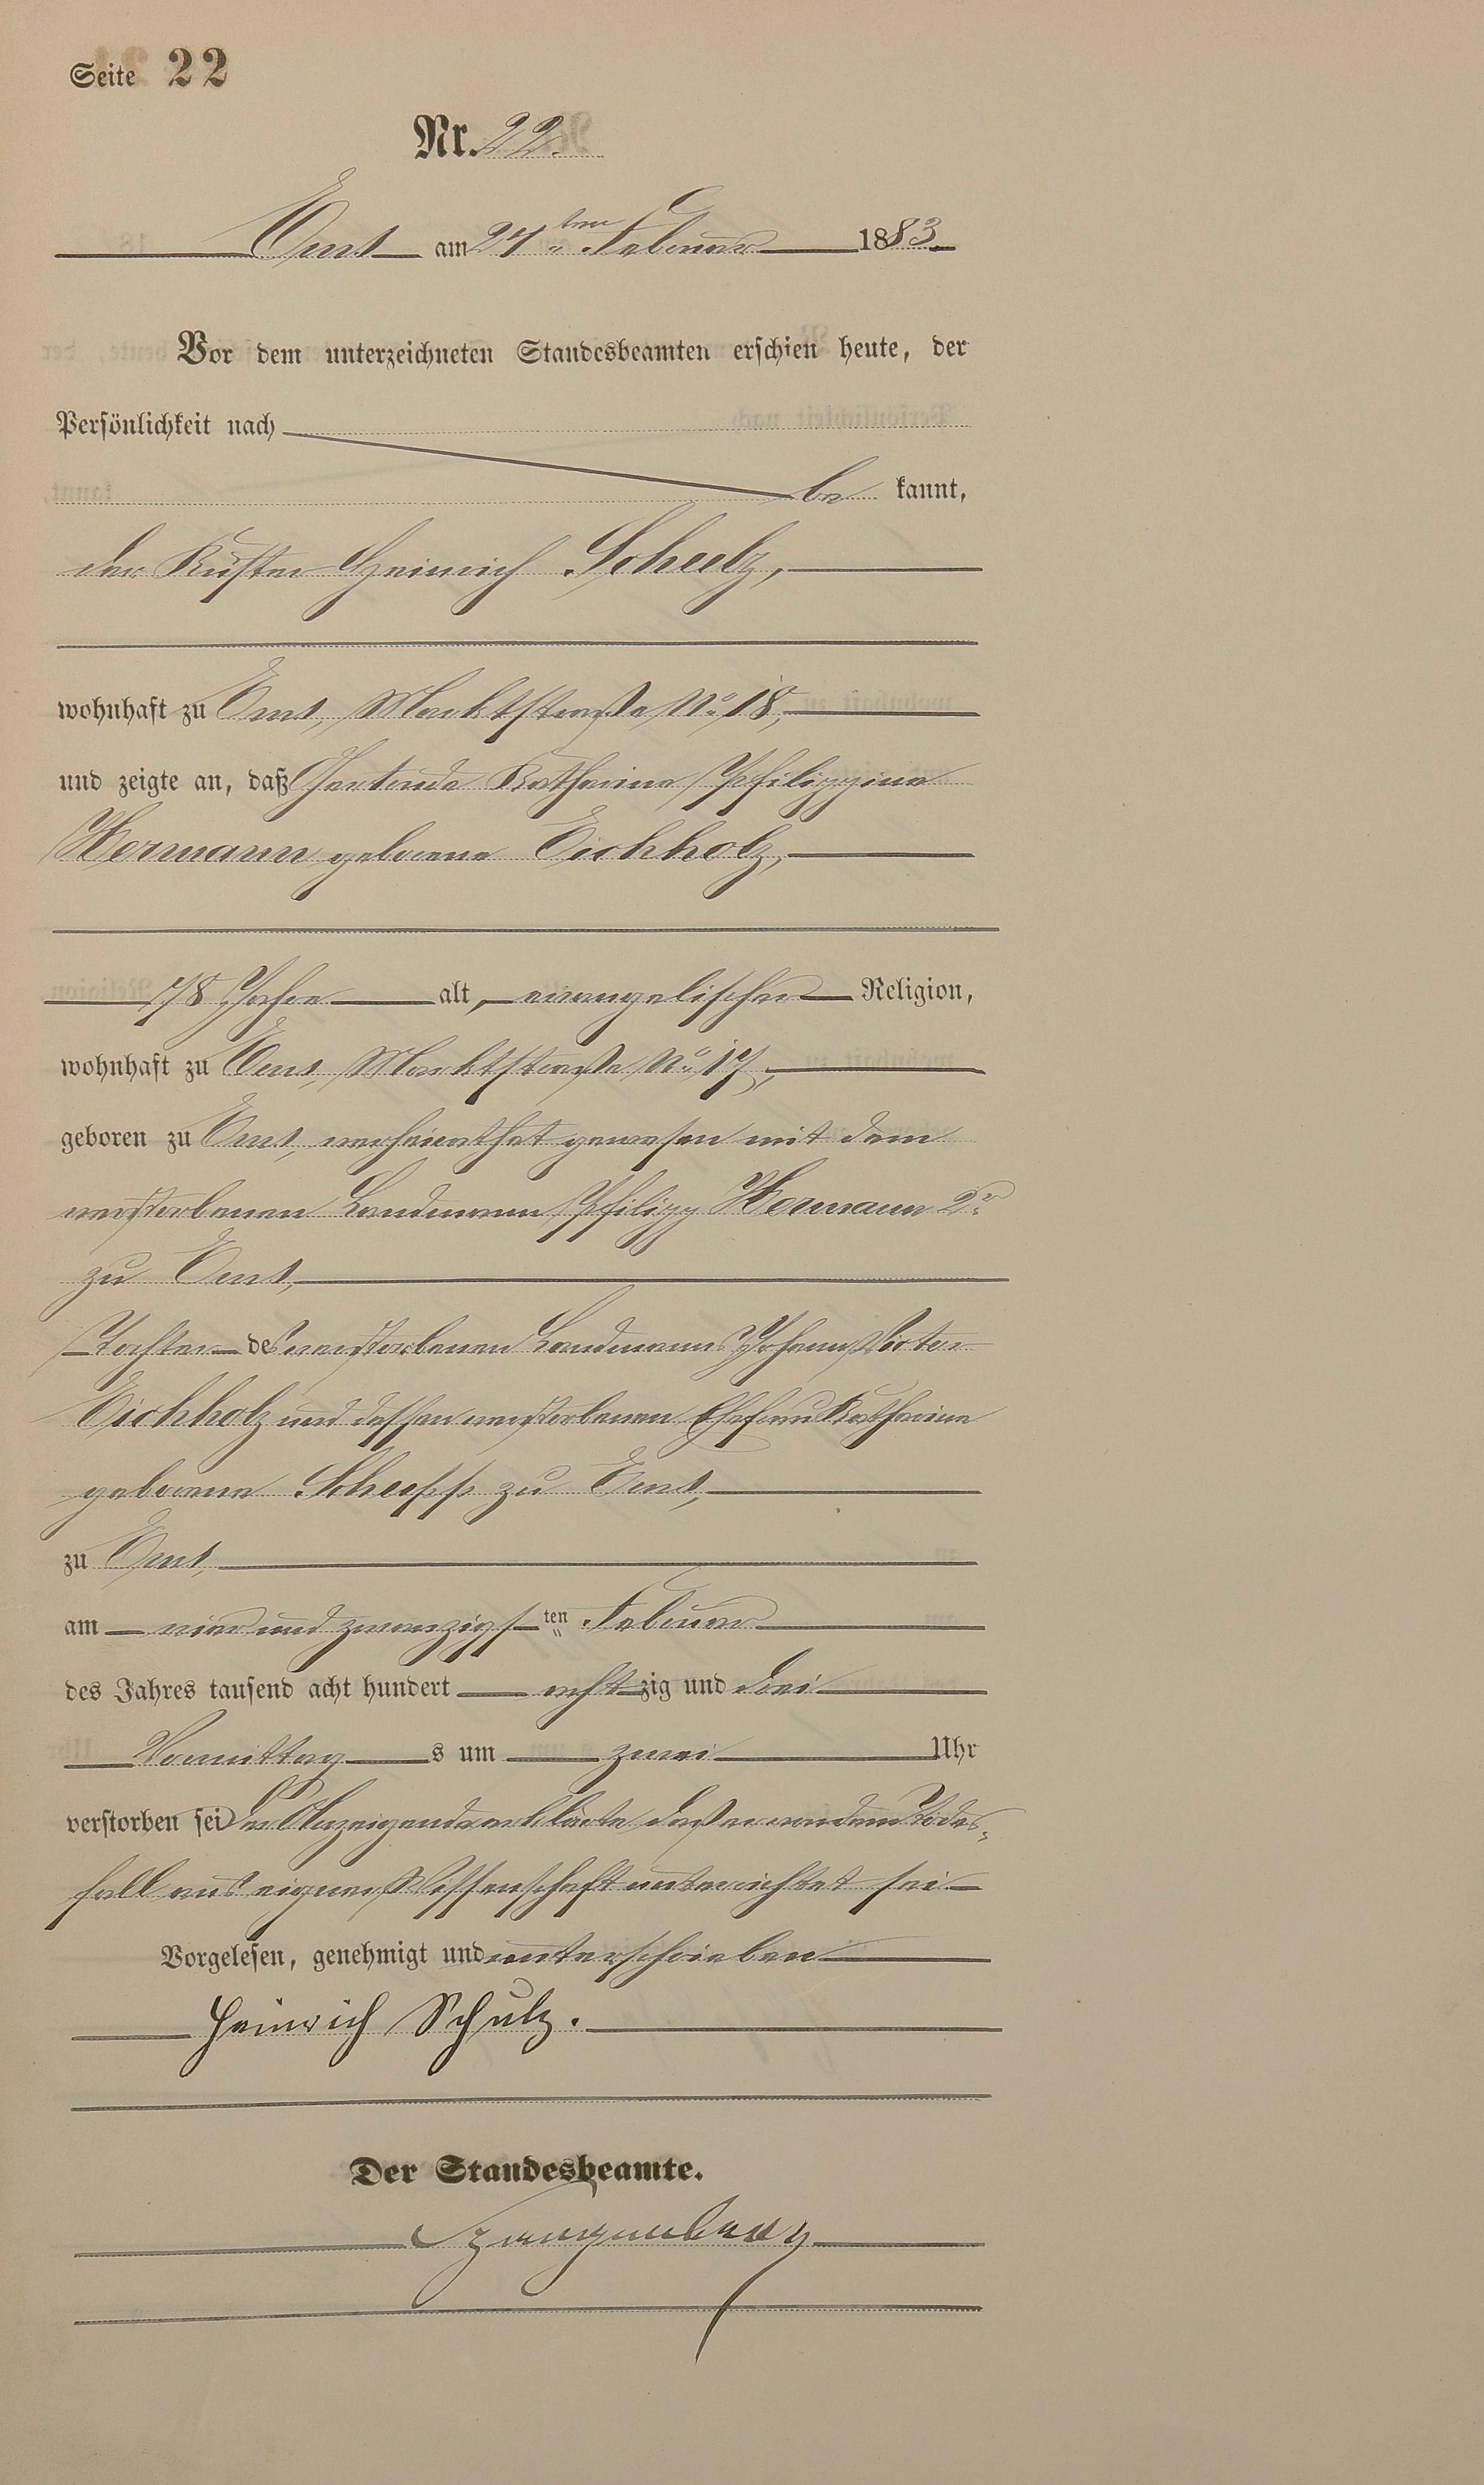 Seite 22
Nr. 22.
Ems am 27ten Februar 1883
Vor dem unterzeichneten Standesbeamten erschien heute, der
Persönlichkeit nach
be kannt,
der Küster Heinrich Schulz,
wohnhaft zu Ems, Marktstraße No 18,
und zeigte an, daß Gertrude Katharine Philippine
Hermann geborene Eichholz,
78 Jahre alt, evangelischer Religion,
wohnhaft zu Ems, Marktstraße No 17,
geboren zu Ems, verheirathet gewesen mit dem
verstorbenen Landmann Philipp Hermann 2r
zu Ems,
Tochter des verstorbenen Landmanns Johann
Eichholz und dessen verstorbenen Ehefrau Katharine
geborene Schupp zu Ems,
zu Ems,
am vier und zwanzigsten Februar
des Jahres tausend acht hundert achtzig und drei
Vormittags um zwei Uhr
verstorben sei Der Anzeigende erklärte daß er von dem Todes-
fall aus eigner Wissenschaft unterrichtet sei
Vorgelesen, genehmigt und unterschrieben
Heinrich Schulz.
Der Standesbeamte.